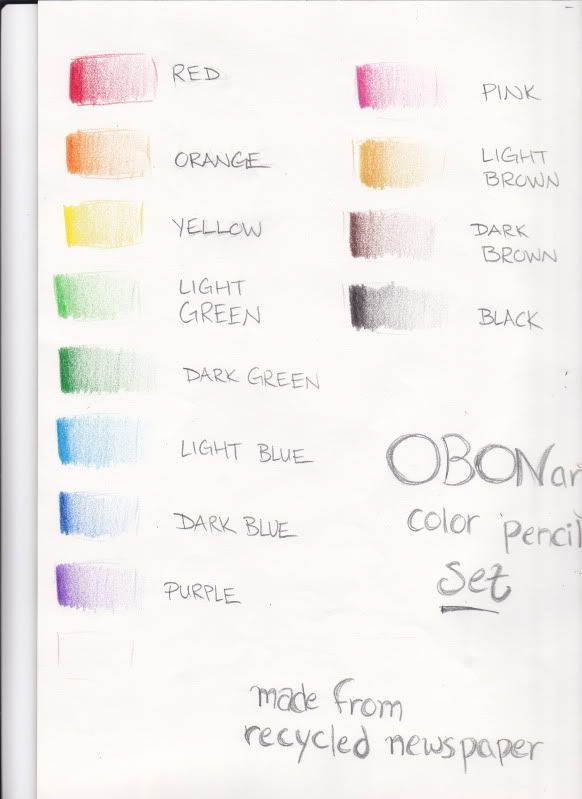 RED
ORANGE
YELLOW
LIGHT
GREEN
DARK GREEN
LIGHT BLUE
DARK BLUE
PURPLE
PINK
LIGHT
BROWN
DARK
BROWN
BLACK
OBONar
color pencil
set
made from
recycled newspaper